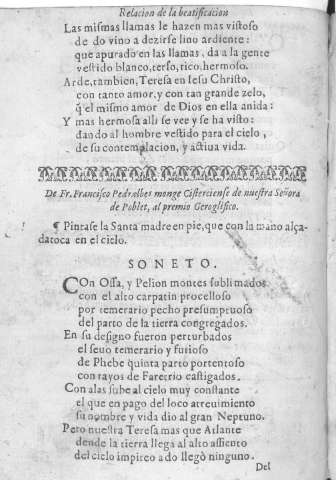 Relacion de la beatificacion
Las mismas llamas le hazen mas vistoso
de do vino a dezirse lino ardiente:
que apurado en las llamas, da a la gente
vestido blanco, terso, rico, hermoso.
Arde, tambien, Teresa en Iesu Christo,
con tanto amor, y con tan grande zelo,
q̃ el mismo amor de Dios en ella anida:
Y mas hermosa alli se vee y se ha visto:
dando al hombre vestido para el cielo,
de su contemplacion, y actiua vida.
De Fr. Francisco Pedralbes monge Cisterciense de nuestra Señora
de Poblet, al premio Geroglifico.
¶ Pintase la Santa madre en pie, que con la mano alça-
da toca en el cielo.
SONETO.
COn Ossa, y Pelion montes sublimados
con el alto carpatin procelloso
por temerario pecho presumptuoso
del parto de la tierra congregados.
En su designo fueron perturbados
el seuo temerario y fusioso
de Phebe quinta parto portentoso
con rayos de Faretrio castigados.
Con alas sube al cielo muy constante
el que en pago del loco atreuimiento
su nombre y vida dio al gran Neptuno.
Pero nuestra Teresa mas que Atlante
dende la tierra llega al alto assiento
del cielo impireo a do llegò ninguno.
Del